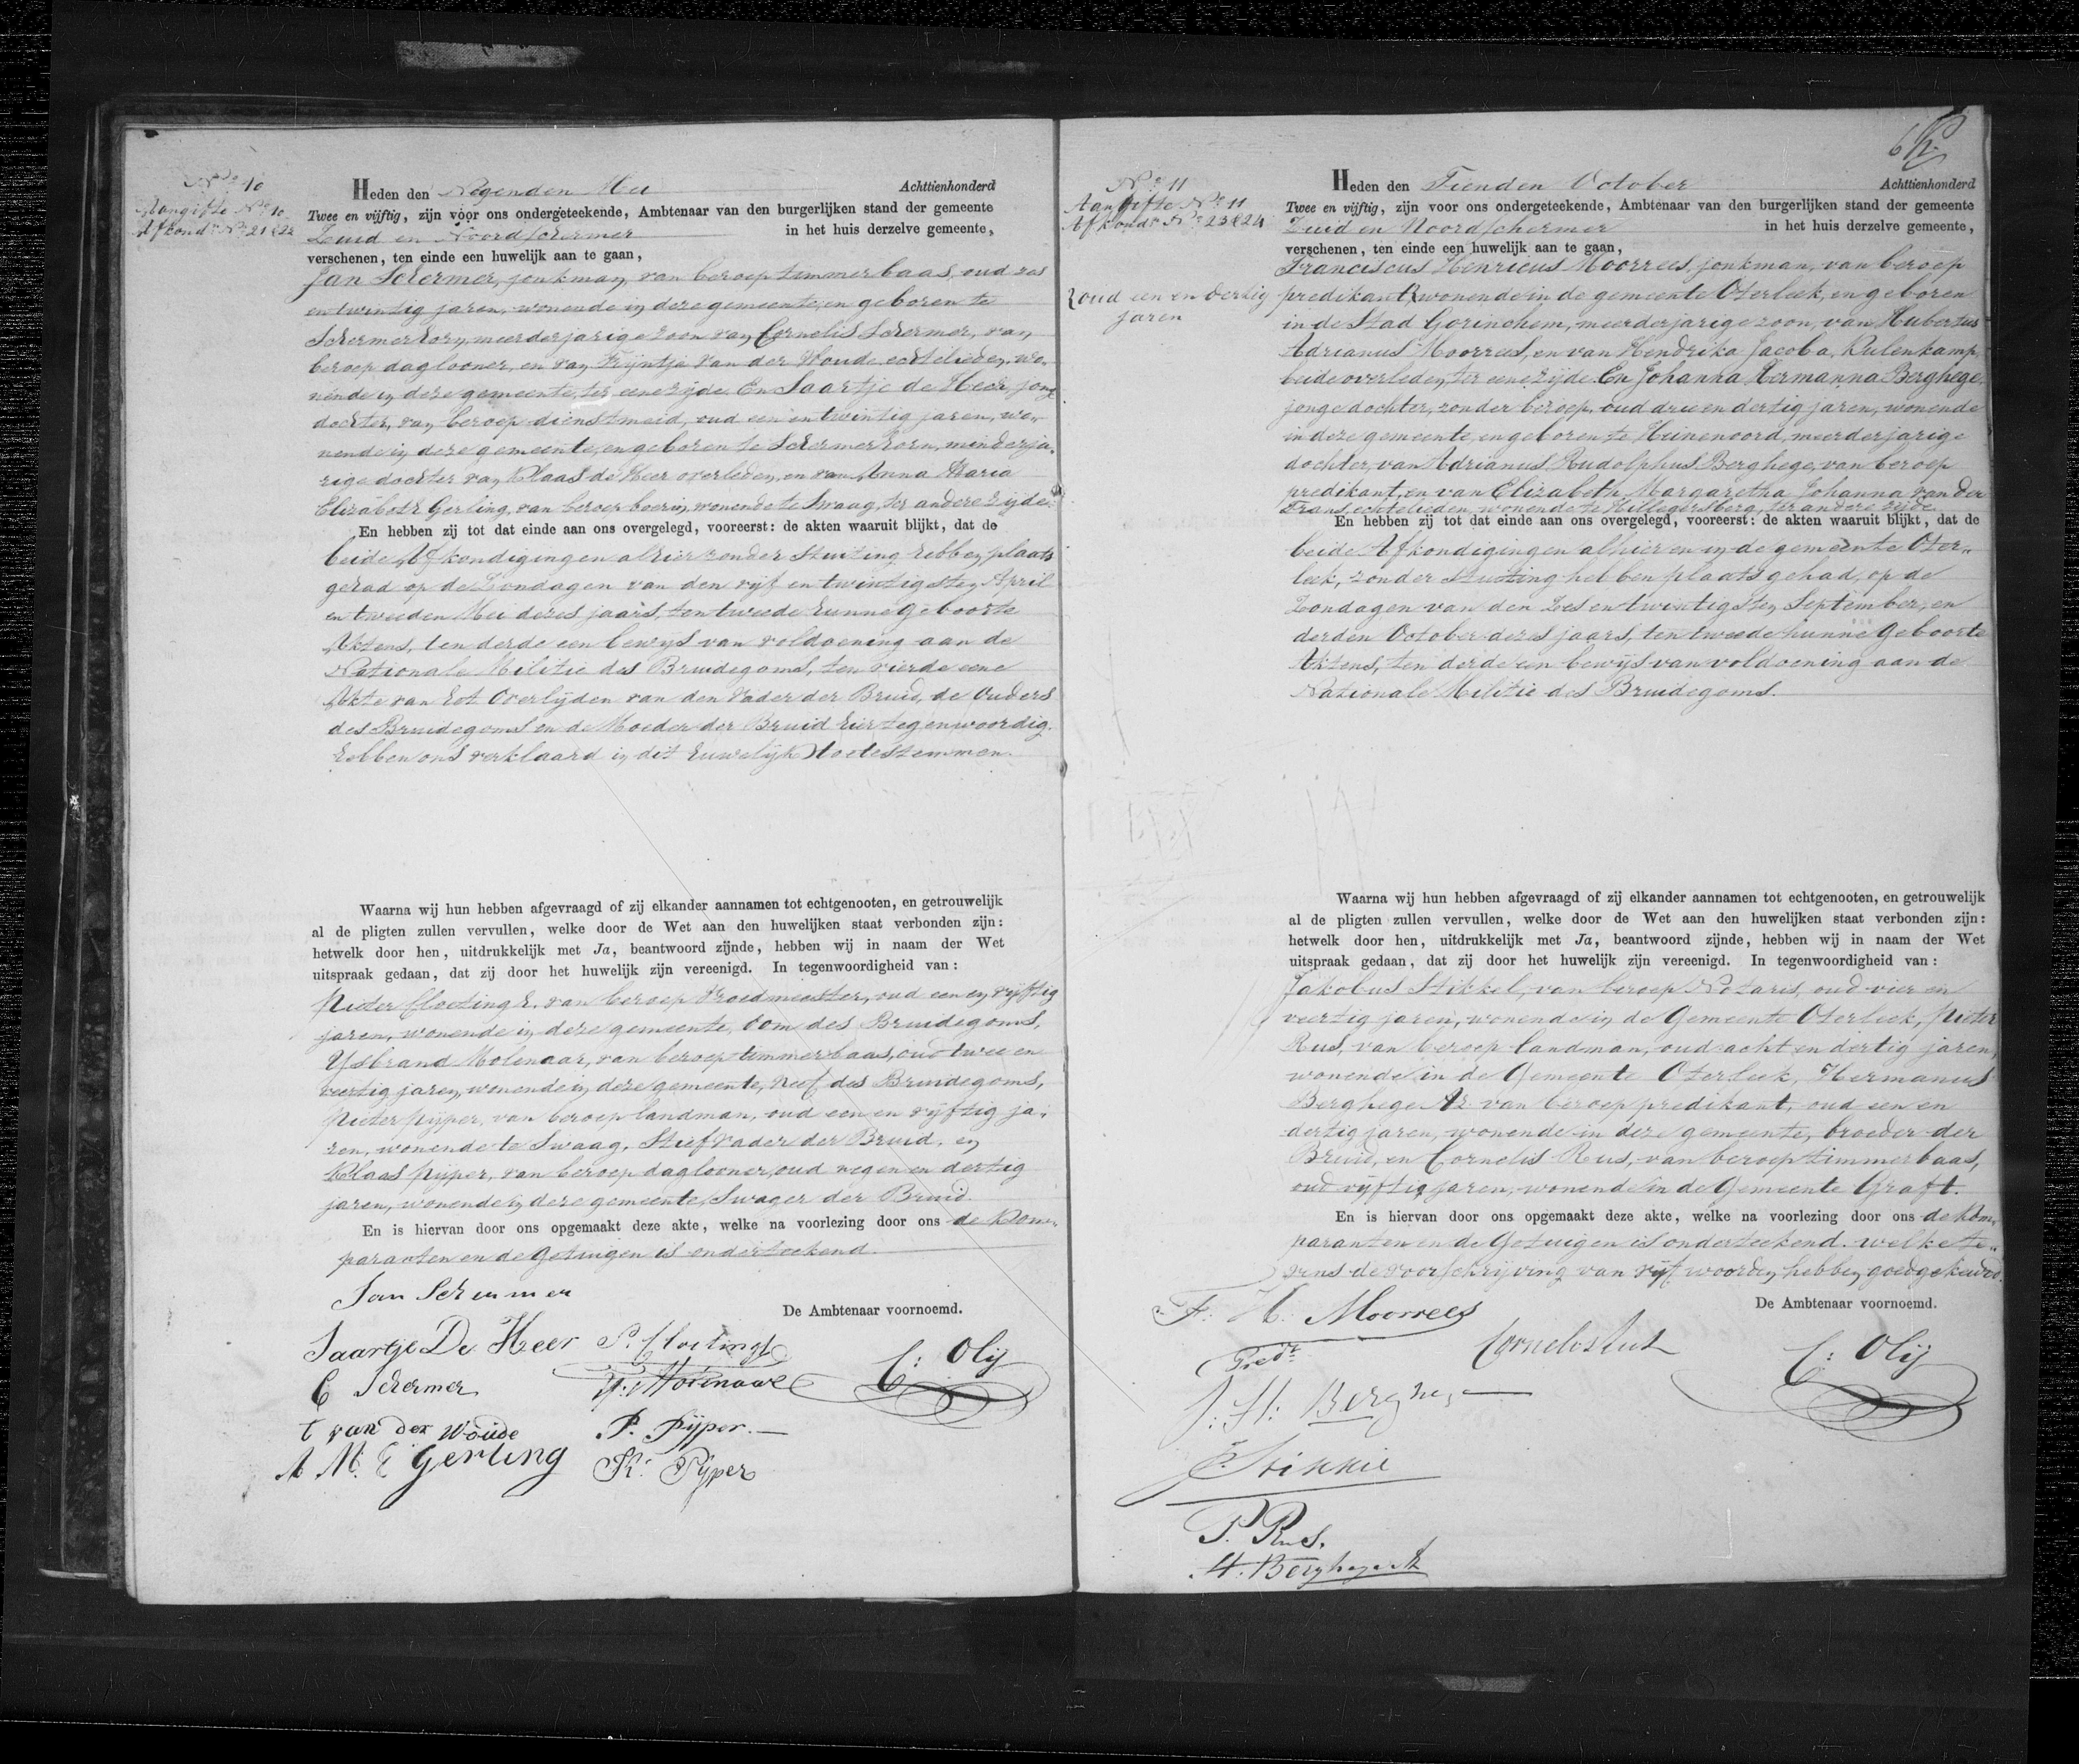 Nº 10
Aangifte Nº 10
Afkondn Nº 21 & 22
Heden den Negenden Mei Achttienhonderd
Twee en vijftig, zijn voor ons ondergeteekende, Ambtenaar van den burgerlijken stand der gemeente
Zuid en Noordschermer in het huis derzelve gemeente,
verschenen, ten einde een huwelijk aan te gaan,
Jan Schermer, jonkman, van beroep timmerbaas, oud zes
en twintig jaren, wonende in deze gemeente, en geboren te
Schermerhorn, meerderjarige zoon van Cornelis Schermer, van
beroep daglooner, en van Trijntje van der Woude echtelieden, wo-
nende in deze gemeente, ter eene zijde. En Saartje de Heer jonge
dochter, van beroep dienstmeid, oud een en twintig jaren, wo-
nende in deze gemeente, en geboren te Schermerhorn, minderja-
rige dochter van Klaas de Heer overleden, en van Anna Maria
Elizabeth Gerling, van beroep boerin, wonende te Swaag, ter andere zijde.
En hebben zij tot dat einde aan ons overgelegd, vooreerst: de akten waaruit blijkt, dat de
beide Afkondigingen alhier zonder stuiting hebben plaats
gehad op de Zondagen van den vijf en twintigsten April
en tweeden Mei dezes jaars, ten tweede hunne Geboorte
Aktens, ten derde een bewijs van voldoening aan de
Nationale Militie des Bruidegoms, ten vierde eene
Akte van het Overlijden van den Vader der Bruid, de Ouders
des Bruidegoms en de Moeder der Bruid hier tegenwoordig.
hebben ons verklaard in dit huwelijk toetestemmen.
Waarna wij hun hebben afgevraagd of zij elkander aannamen tot echtgenooten, en getrouwelijk
al de pligten zullen vervullen, welke door de Wet aan den huwelijken staat verbonden zijn:
hetwelk door hen, uitdrukkelijk met Ja, beantwoord zijnde, hebben wij in naam der Wet
uitspraak gedaan, dat zij door het huwelijk zijn vereenigd. In tegenwoordigheid van:
Pieter Cloeting h. van beroep Vroedmeester, oud een en vijftig
jaren, wonende in deze gemeente, Oom des Bruidegoms,
IJsbrand Molenaar, van beroep timmerbaas, oud twee en
veertig jaren, wonende in deze gemeente, Neef des Bruidegoms,
Pieter Pijper, van beroep landman, oud een en vijftig ja-
ren, wonende te Swaag, Stiefvader der Bruid. en
Klaas Pijper, van beroep daglooner, oud negen en dertig
jaren, wonende in deze gemeente, Swager der Bruid.
En is hiervan door ons opgemaakt deze akte, welke na voorlezing door ons de Kom-
paranten en de Getuigen is onderteekend.
Jan Schermer
De Ambtenaar voornoemd.
Saartje De Heer P. Cloetingh
C: Olij
C Schermer IJ. Molenaar
t van der Woude P. Pijper.
A M. E Gerling K. Pijper
6
Nº 11
Aangifte Nº 11
Afkondn Nº 23 & 24
oud een en dertig
jaren
Heden den Tienden October Achttienhonderd
Twee en vijftig, zijn voor ons ondergeteekende, Ambtenaar van den burgerlijken stand der gemeente
Zuid en Noordschermer in het huis derzelve gemeente,
verschenen, ten einde een huwelijk aan te gaan,
Franciscus Henricus Moorrees, jonkman, van beroep
predikant, wonende in de gemeente Oterleek, en geboren
in de Stad Gorinchem, meerderjarige zoon, van Hubertus
Adrianus Moorrees, en van Hendrika Jacoba, Kulenkamp,
beide overleden, ter eene zijde. En Johanna Hermanna Berghege,
jonge dochter, zonder beroep, oud drie en dertig jaren, wonende
in deze gemeente, en geboren te Heinenoord, meerderjarige
dochter, van Adrianus Rudolphus Berghege, van beroep
predikant, en van Elizabeth Margaretha Johanna van der
Frans, echtelieden, wonende te Hillegersberg, ter andere zijde.
En hebben zij tot dat einde aan ons overgelegd, vooreerst: de akten waaruit blijkt, dat de
beide Afkondigingen alhier en in de gemeente Oter-
leek, zonder stuiting hebben plaats gehad, op de
Zondagen van den Zes en twintigsten September, en
derden October dezes jaars, ten tweede hunne Geboorte
Aktens, ten derde een bewijs van voldoening aan de
Nationale Militie des Bruidegoms.
Waarna wij hun hebben afgevraagd of zij elkander aannamen tot echtgenooten, en getrouwelijk
al de pligten zullen vervullen, welke door de Wet aan den huwelijken staat verbonden zijn:
hetwelk door hen, uitdrukkelijk met Ja, beantwoord zijnde, hebben wij in naam der Wet
uitspraak gedaan, dat zij door het huwelijk zijn vereenigd. In tegenwoordigheid van:
Jakobus Stikkel, van beroep Notaris, oud vier en
veertig jaren, wonende in de Gemeente Oterleek, Pieter
Rus, van beroep landman, oud acht en dertig jaren,
wonende in de Gemeente Oterleek, Hermanus
Berghege Az. van beroep predikant, oud een en
dertig jaren, wonende in deze gemeente, broeder der
Bruid, en Cornelis Rus, van beroep timmerbaas,
oud vijftig jaren, wonende in de Gemeente Graft.
En is hiervan door ons opgemaakt deze akte, welke na voorlezing door ons de Kom-
paranten en de Getuigen is onderteekend. welke te-
vens de voorschrijving van vijf woorden hebben goedgekeurd.
F. H. Moorrees
De Ambtenaar voornoemd.
Predt
Cornelis Rus
C: Olij
J: H: Berghege
J. Stikkel
P. Rus.
H. Berghege Az